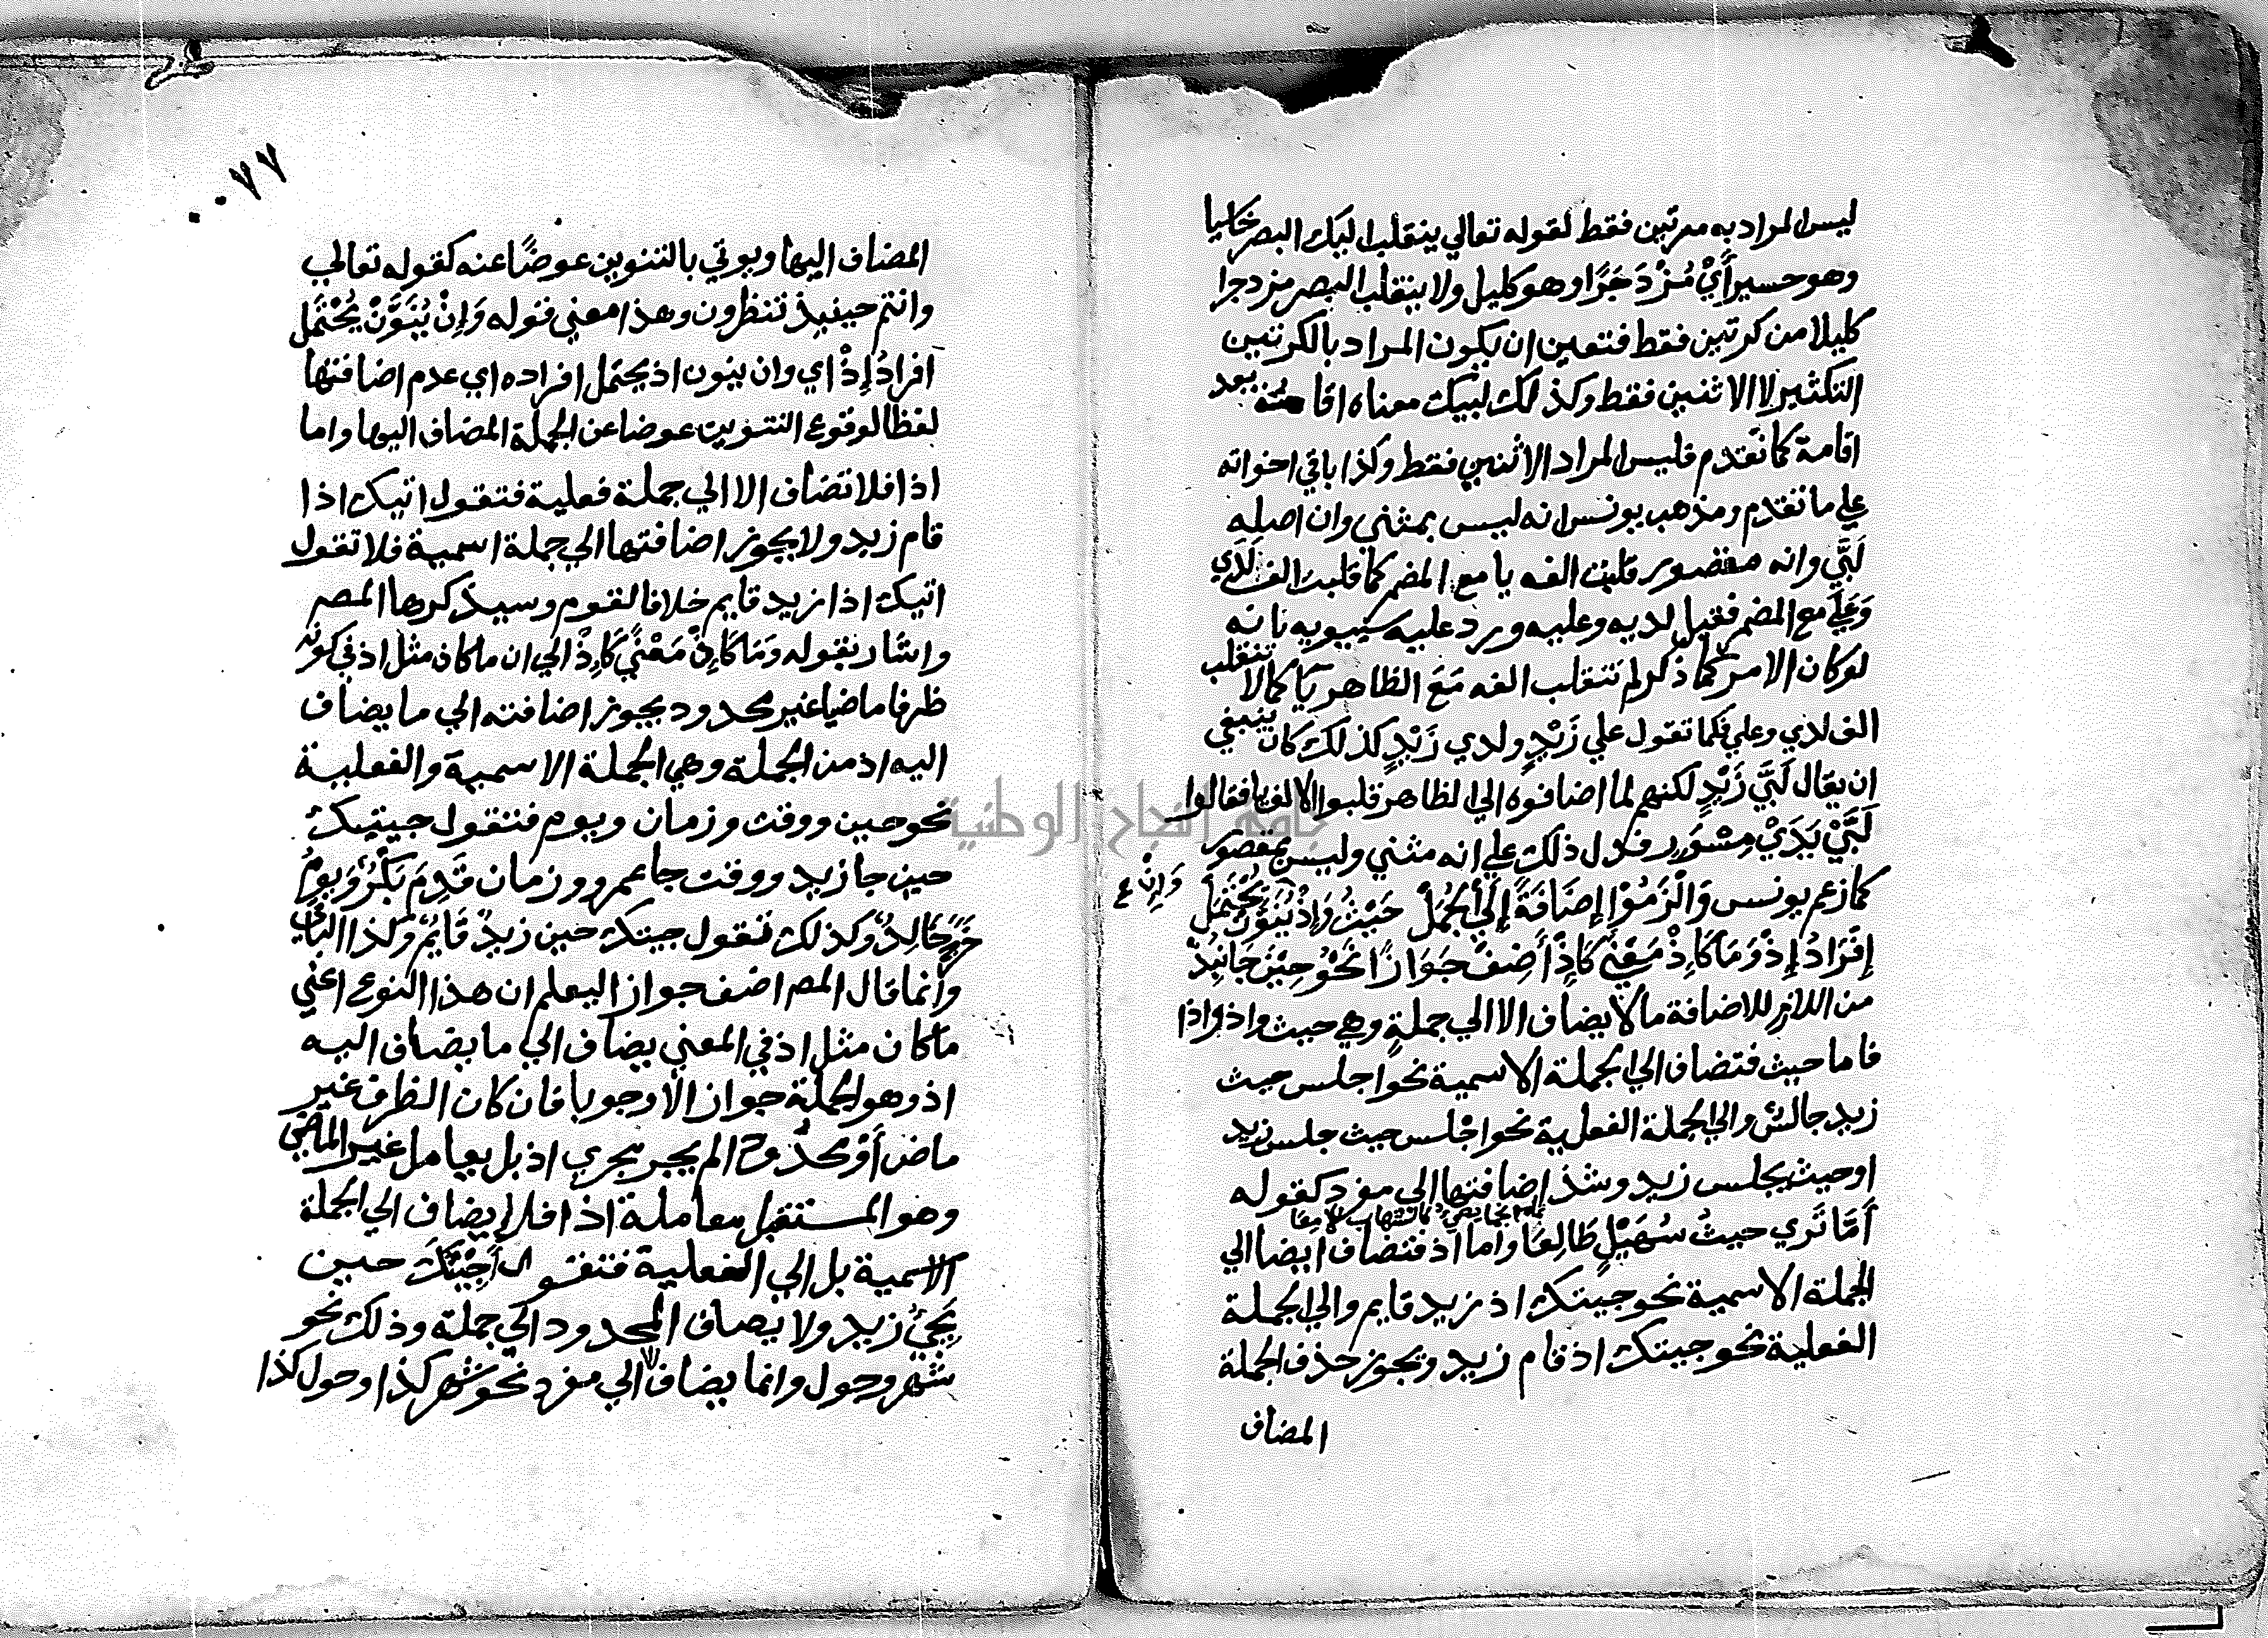 ليس المراد به مرتين فقط لقوله تعالي ينقلب اليك البصر خاسيا
وهو حسير أَيْ مُزْدَجَرًا وهو كليل ولا ينقلب البصر مزدجرا
كليلا من كرتين فقط فتعين ان يكون المراد بالكرتين
التكثير لا الاثنين فقط وكذلك لبيك معناه اقامة بعد
اقامة كما تقدم فليس المراد الاثنين فقط وكذا باقي اخواته
علي ما تقدم ومذهب يونس انه ليس بمثني وان اصله
لَبَّي وانه مقصور قلبت الفه يا مع المضمر كما قلبت الف لَدَي
وَعَلَي مع المضمر فقيل لديه وعليه ورد عليه سيبويه بانه
لو كان الامر كما ذكر لم تنقلب الفه مَعَ الظاهر يَا كما لا تنقلب
الف لدي وعلي فكما تقول علي زَيْدٍ ولدي زَيْدٍ كذلك كان ينبغي
ان يقال لَبَّي زَيْدٍ لكنهم لما اضافوه الي الظاهر قلبوا الالف يا فقالوا
لَبَّيْ يَدَيْ مِسْوَرِ فدل ذلك علي انه مثني وليس بمقصور
كما زعم يونس وَأَلْزَمُوْا إِضَافَةً إِلَي الْجُمَلْ حَيْثُ وَإِذْ يُنَوَّنْ يُحْتَمَلْ
وَإِنْ ع
إِفْرَادُ إِذْ وَمَا كَإِذْ مَعْنًي كَإِذْ أَضِفْ جَوَازًا نَحْوُ حِيْنَ جَا نُبِذْ
من اللازم للاضافة ما لا يضاف الا الي جملةٍ وهي حيث واذ واذا
فاما حيث فتضاف الي الجملة الاسمية نحو اجلس حيث
زيد جالسٌ والي الجملة الفعلية نحو اجْلس حيث جلس زيد
او حيث يجلس زيد وشذ اضافتها الي مفرد كقوله
أَمَا تَرَي حيثُ سُهَيْلٍ طَالِعًا واما اذ فتضاف ايضا الي
الجملة الاسمية نحو جيتك اذ زيد قايم والي الجملة
الفعلية نحو جيتك اذ قام زيد ويجوز حذف الجملة
المضاف
٠٠٧٧
المضاف اليها ويوتي بالتنوين عوضًا عنه كقوله تعالي
وانتم حينيذ تنظرون وهذا معني قوله وَإِنْ يُنَوَّنْ يُحْتَمَل
افرادُ إِذْ اي وان ينون اذ يحتمل افراده اي عدم اضافتها
لفظا لوقوع التنوين عوضا عن الجملة المضاف اليها واما
اذا فلا تضاف الا الي جملة فعلية فتقول اتيك اذا
قام زيد ولا يجوز اضافتها الي جملة اسمية فلا تقول
اتيك اذا زيد قايم خلافا لقوم وسيذكرها المص
واشار بقوله وَمَا كَإِذْ مَعْنًي كَإِذْ الي ان ما كان مثل اذ في كونه
ظرفا ماضيا غير محدود يجوز اضافته الي ما يضاف
اليه اذ من الجملة وهي الجملة الاسمية والفعلية
نحو حين ووقت وزمان ويوم فتقول جيتك
حين جا زيد ووقت جا عمرو وزمان قَدِمَ بَكْرٌ وَيومُ
خَرَجَ خَالِدٌ وكذلك تقول جيتك حين زيدٌ قَايمٌ وكذا الباقي
وانما قال المص اضف جوازا ليعلم ان هذا النوع اعني
ما كان مثل اذ في المعني يضاف الي ما يضاف اليه
اذ وهو الجملة جوازا لا وجوبا فان كان الظرف غير
ماض أَوْ محدودا لم يجر مجري اذ بل يعامل غير الماضي
وهو المستقبل معاملة اذا فلا يضاف الي الجملة
الاسمية بل الي الفعلية فتقول أَجِيْئُكَ حين
يَجِيُ زيد ولا يضاف المحدود الي جملة وذلك نحو
شهر وحول وانما يضاف الي مفرد نحو شهر كذا وحول كذا
جامعة النجاح الوطنية